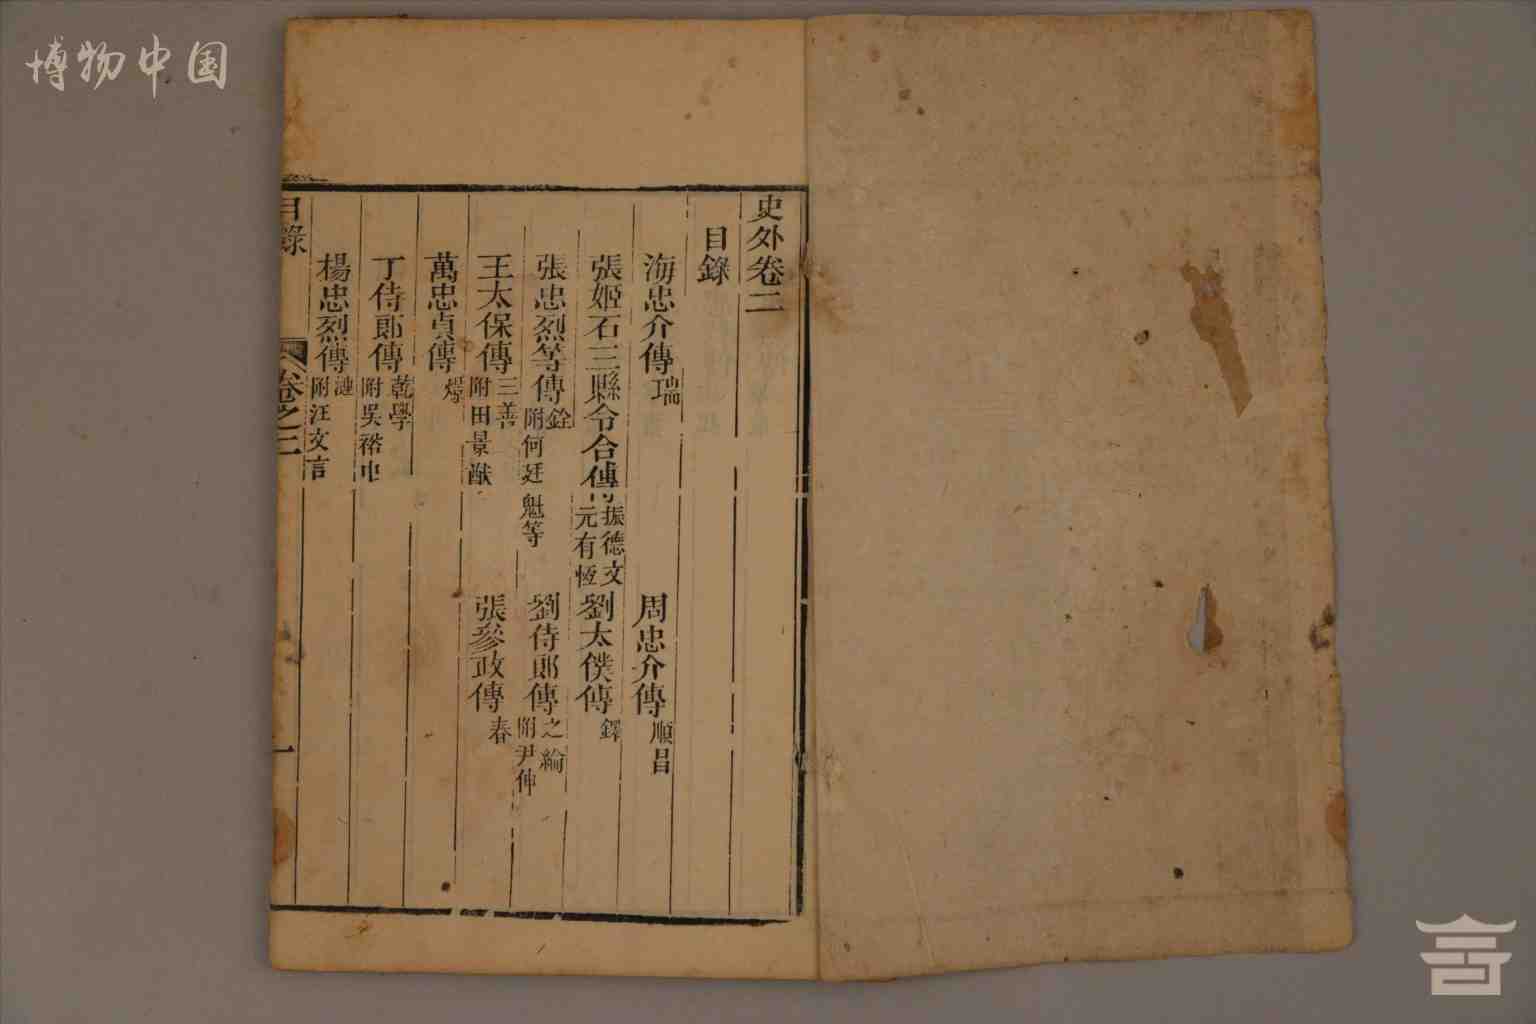 博物中国
史外卷二
目錄
海忠介傳 瑞 周忠介傳 順昌
張姬石三縣令合傳 振德文 元有恆 劉太僕傳 鐸
張忠烈等傳 銓 附何廷魁等 劉侍郎傳 之綸 附尹伸
王太保傳 三善 附田景猷 張參政傳 春
萬忠貞傳 燝
丁侍郎傳 乾學 附吳裕中
楊忠烈傳 漣 附汪文言
目錄 卷之二 一